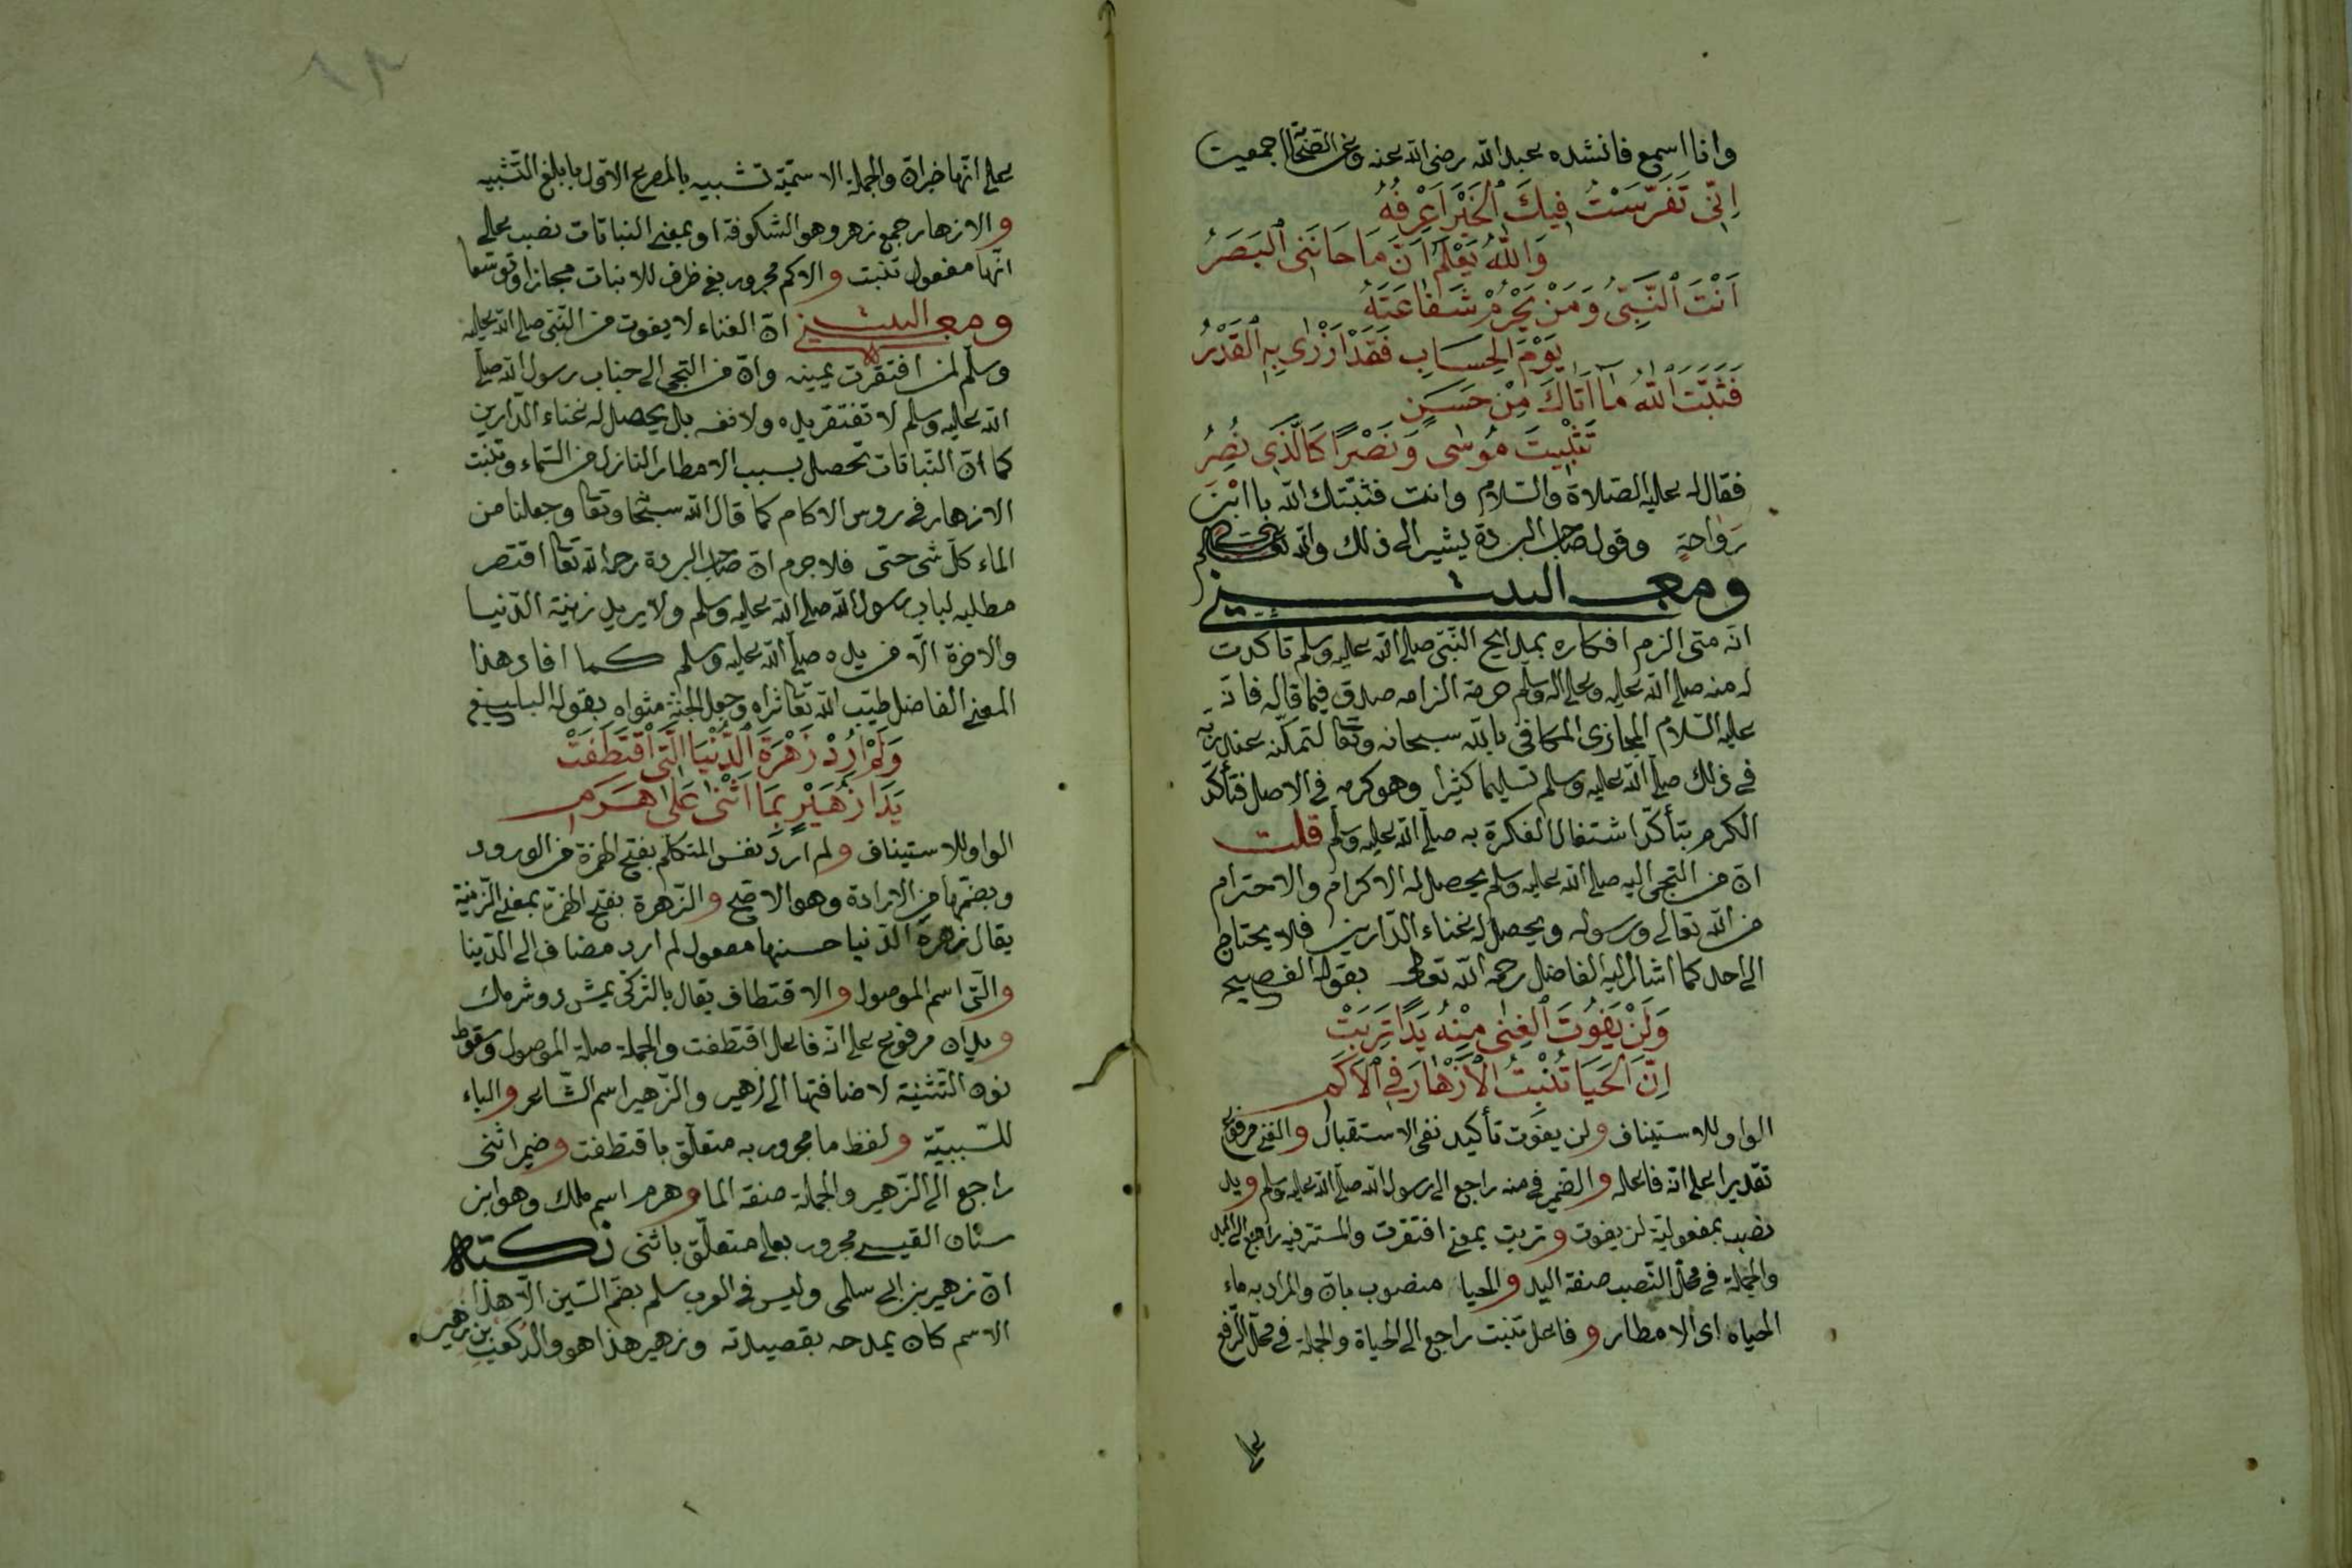 وانا اسمع فانشده عبد الله رضى الله عنه وعن الصحابة اجمعين
اِنِّى تَفَرَّسْتُ فِيكَ الْخَيْرَ اَعْرِفُهُ
وَاللّٰهُ يَعْلَمُ اَنَّ مَا خَانَنِى الْبَصَرُ
اَنْتَ النَّبِىُّ وَمَنْ يُحْرَمْ شَفَاعَتَهُ
يَوْمَ الْحِسَابِ فَقَدْ اَزْرٰى بِهِ الْقَدْرُ
فَثَبَّتَ اللّٰهُ مَا اَتَاكَ مِنْ حَسَنٍ
تَثْبِيتَ مُوسٰى وَنَصْرًا كَالَّذِى نُصِرُ
فقال له عليه الصلاة والسلام وانت فثبّتك الله يا ابْنَ
رَوَاحةٍ وقول صاحب البردة يشير الى ذلك والله تعالى
ومعنى البيت
انه متى الزم افكاره بمدايح النّبى صلى الله عليه وسلم تأكّدت
له منه صلى الله عليه وعلى اله وسلم حرمة الزامه صدق فيما قاله فانّه
عليه السّلام المجازى المكافى بالله سبحانه وتعالى لتمكّنه عند ربّه
فى ذلك صلى الله عليه وسلم تسليما كثيرا وهو كرمه فى الاصل فتأكّد
الكرم بتأكّد اشتغال الفكرة به صلى الله عليه وسلم قلت
انّ من التجى اليه صلى الله عليه وسلم يحصل له الاكرام والاحترام
من الله تعالى ورسوله ويحصل له غناء الدّارين فلا يحتاج
الى احد كما اشار اليه الفاضل رحمه الله تعالى بقوله الفصيح
وَلَنْ يَفُوتَ الْغِنٰى مِنْهُ يَدًا تَرِبَتْ
اِنَّ الْحَيَا تُنْبِتُ الْاَزْهَارَ فِى الْاَكَمِ
الواو للاستيناف ولن يفوت تأكيد نفى الاستقبال والغنى مرفوع
تقديرا على انه فاعله والضمير فى منه راجع الى رسول الله صلى الله عليه وسلم ويد
نصب بمفعوليّة لن يفوت وتربت بمعنى افتقرت والمستتر فيه راجع الى اليد
والجملة فى محلّ النّصب صفة اليد والحيا منصوب بانّ والمراد به ماء
الحياه اى الامطار وفاعل تنبت راجع الى الحياة والجملة فى محلّ الرّفع
على
على انّها خبر انّ والجملة الاسميّة تشبيه بالمصرع الاوّل بابلغ التّشبيه
والازهار جمع زهر وهو الشكوفة او بمعنى النباتات نصب على
انّها مفعول تنبت والاكم مجرور بفى ظرف للانبات مجازا وتوسّعا
ومعنى البيت انّ الغناء لا يفوت من النّبى صلى الله عليه
وسلّم لمن افتقرت يمينه وانّ من التجى الى جناب رسول الله صلى
الله عليه وسلم لا تفتقر يده ولا نفسه بل يحصل له غناء الدّارين
كما انّ النّباتات تحصل بسبب الامطار النازل من السّماء وتنبت
الازهار فى روس الاكام كما قال الله سبحانه وتعالى وجعلنا من
الماء كلّ شى حىّ فلا جرم انّ صاحب البردة رحمه الله تعالى اقتصر
مطلبه لباب رسول الله صلى الله عليه وسلم ولا يريد زينة الدّنيا
والاخرة الّا من يده صلى الله عليه وسلم كما افاد هذا
المعنى الفاضل طيّب الله تعالى ثراه وجعل الجنّة مثواه بقوله البليغ
وَلَمْ اُرِدْ زَهْرَةَ الدُّنْيَا الَّتِى اقْتَطَفَتْ
يَدَا زُهَيْرٍ بِمَا اَثْنٰى عَلٰى هَرَمِ
الواو للاستيناف ولم ارد نفس المتكلّم بفتح الهمزة من الورود
وبضمّها من الارادة وهو الاصح والزّهرة بفتح الهمزة بمعنى الزّينة
يقال زهرة الدّنيا حسنها مفعول لم ارد مضاف الى الدّنيا
والّتى اسم الموصول والاقتطاف يقال بالتركى يمش دوشرمك
ويدان مرفوع على انّه فاعل اقتطفت والجملة صلة الموصول وسقوط
نون التّثنية لاضافتها الى زهير والزّهير اسم الشّاعر والباء
للسّببيّة ولفظ ما مجرور به متعلّق باقتطفت وضمير اثنى
راجع الى الزّهير والجملة صفة الما وهرم اسم ملك وهو ابن
سنان القيسى مجرور بعلى متعلّق باثنى نكتة
انّ زهير بن ابى سلمى وليس فى العرب سلم بضمّ السّين الّا هذا
الاسم كان يمدحه بقصيدته وزهير هذا هو والد كعب بن زهير